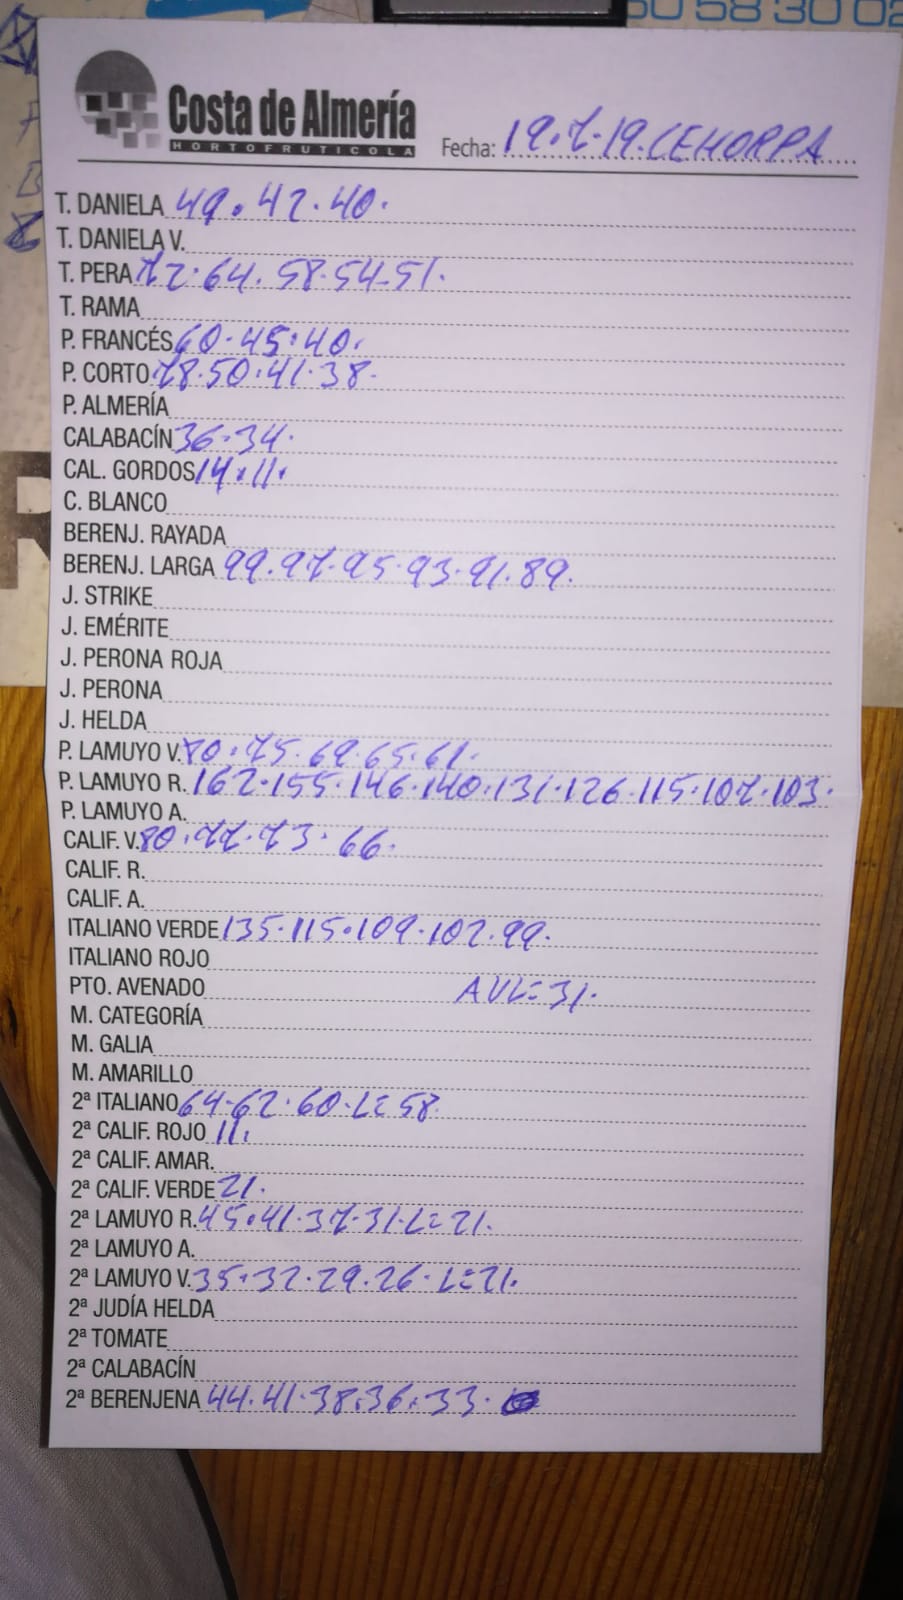 50 58 30 02
Costa de Almería
HORTOFRUTICOLA
Fecha: 19.7.19.CEHORPA
T. DANIELA 49.42.40.
T. DANIELA V.
T. PERA 72.64.58.54.51.
T. RAMA
P. FRANCÉS 60.45.40.
P. CORTO 78.50.41.38.
P. ALMERÍA
CALABACÍN 36.34.
CAL. GORDOS 14.11.
C. BLANCO
BERENJ. RAYADA
BERENJ. LARGA 99.97.95.93.91.89.
J. STRIKE
J. EMÉRITE
J. PERONA ROJA
J. PERONA
J. HELDA
P. LAMUYO V. 80.75.69.65.61.
P. LAMUYO R. 162.155.146.140.131.126.115.107.103.
P. LAMUYO A.
CALIF. V. 80.77.73.66.
CALIF. R.
CALIF. A.
ITALIANO VERDE 135.115.109.102.99.
ITALIANO ROJO
PTO. AVENADO AVL=31.
M. CATEGORÍA
M. GALIA
M. AMARILLO
2ª ITALIANO 64.62.60.L=58.
2ª CALIF. ROJO 11.
2ª CALIF. AMAR.
2ª CALIF. VERDE 21.
2ª LAMUYO R. 45.41.37.31.L=21.
2ª LAMUYO A.
2ª LAMUYO V. 35.32.29.26.L=21.
2ª JUDÍA HELDA
2ª TOMATE
2ª CALABACÍN
2ª BERENJENA 44.41.38.36.33.